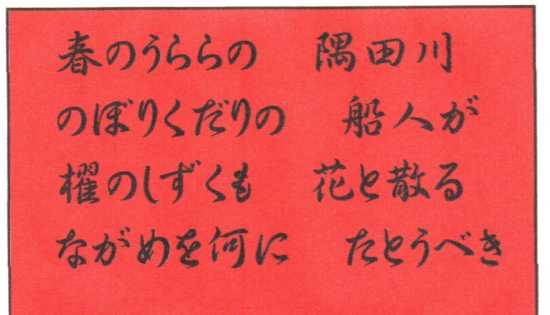 春のうららの　隅田川
のぼりくだりの　船人が
櫂のしずくも　花と散る
ながめを何に　たとうべき